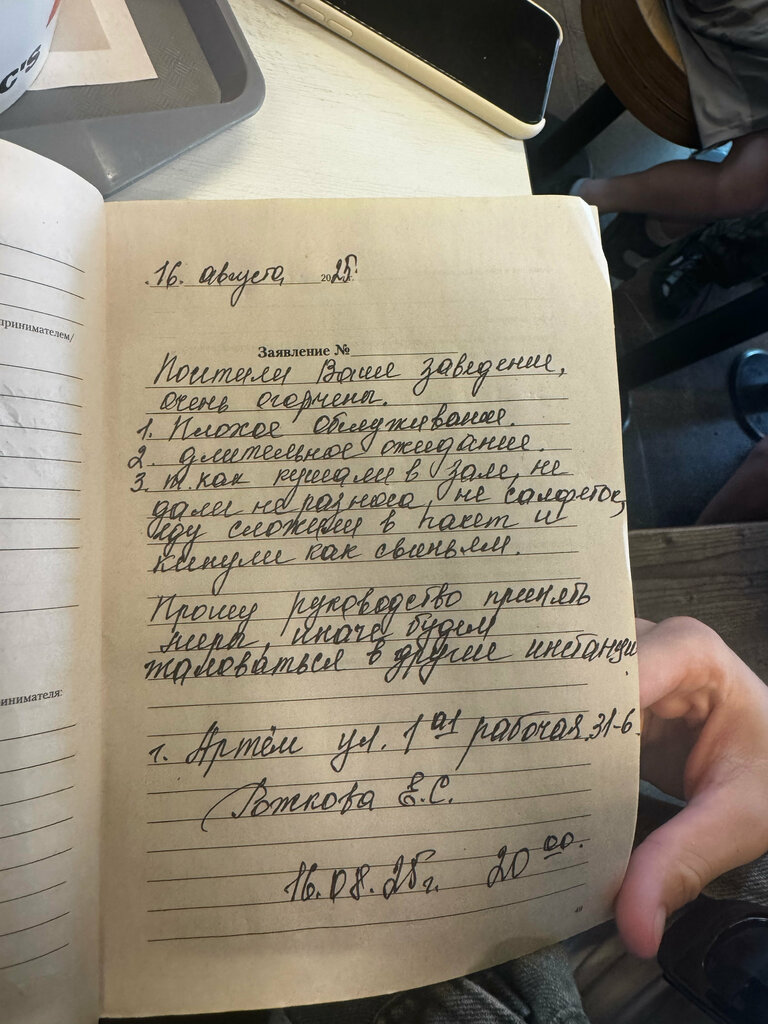 C'S
принимателем/
ринимателя:
16. августа 2025г.
Заявление №
Посетили Ваше заведение,
очень огорчены.
1. Плохое обслуживание.
2. длительное ожидание.
3. т.как кушали в зале, не
дали не разноса, не салфеток,
еду сложили в пакет и
кинули как свиньям.
Прошу руководство принять
меры, иначе будем
жаловаться в другие инстанции.
г. Артём ул. 1ая рабочая 31-6.
Е.С.
16.08.25г. 20 00.
49